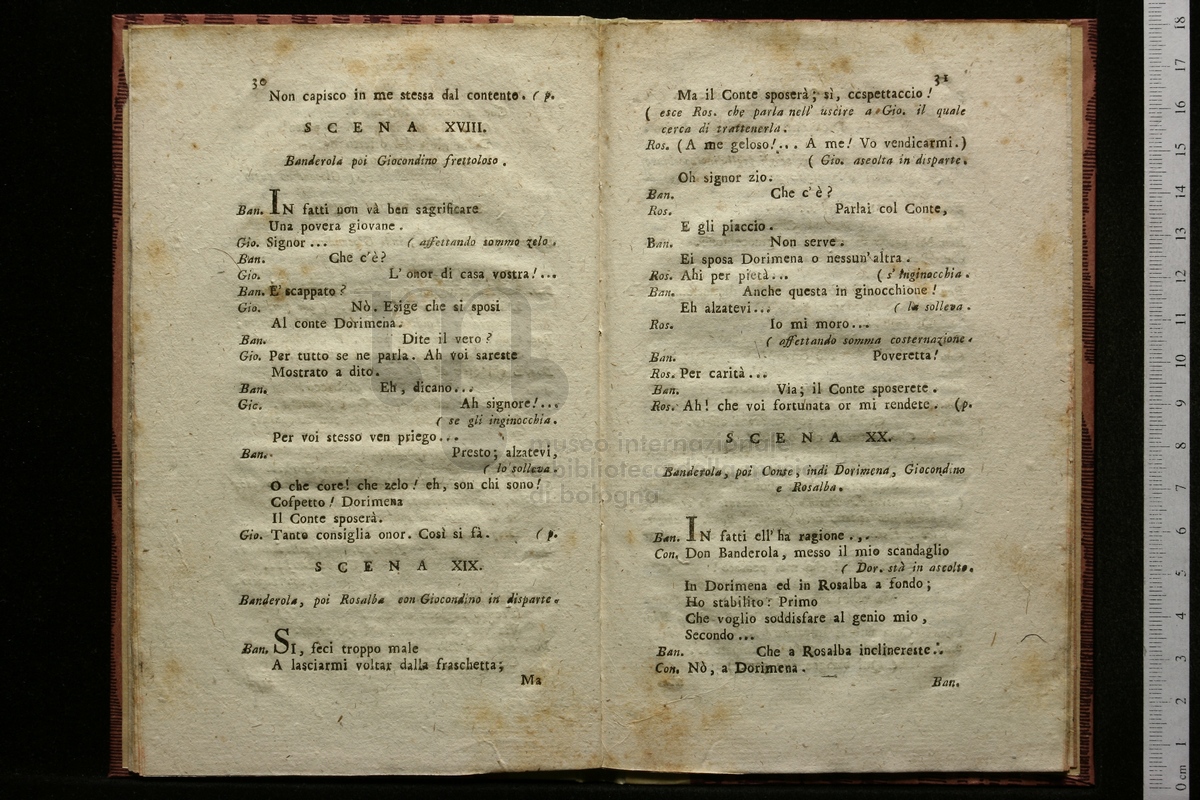 30
Non capisco in me stessa dal contento. ( p.
SCENA XVIII.
Banderola poi Giocondino frettoloso.
Ban. IN fatti non và ben sagrificare
Una povera giovane.
Gio. Signor ... ( affettando sommo zelo.
Ban. Che c'è?
Gio. L'onor di casa vostra!...
Ban. E' scappato?
Gio. Nò. Esige che si sposi
Al conte Dorimena.
Ban. Dite il vero?
Gio. Per tutto se ne parla. Ah voi sareste
Mostrato a dito.
Ban. Eh, dicano...
Gio. Ah signore!...
( se gli inginocchia.
Per voi stesso ven priego...
Ban. Presto; alzatevi,
( lo solleva.
O che core! che zelo! eh, son chi sono!
Cospetto! Dorimena
Il Conte sposerà.
Gio. Tanto consiglia onor. Così si fà. ( p.
SCENA XIX.
Banderola, poi Rosalba con Giocondino in disparte.
Ban. SI, feci troppo male
A lasciarmi voltar dalla fraschetta;
Ma
31
Ma il Conte sposerà; sì, ccspettaccio!
( esce Ros. che parla nell' uscire a Gio. il quale
cerca di trattenerla.
Ros. (A me geloso!... A me! Vo vendicarmi.)
( Gio. ascolta in disparte.
Oh signor zio.
Ban. Che c'è?
Ros. Parlai col Conte,
E gli piaccio.
Ban. Non serve.
Ei sposa Dorimena o nessun'altra.
Ros. Ahi per pietà... ( s' inginocchia.
Ban. Anche questa in ginocchione!
Eh alzatevi... ( la solleva.
Ros. Io mi moro...
( affettando somma costernazione.
Ban. Poveretta!
Ros. Per carità...
Ban. Via; il Conte sposerete.
Ros. Ah! che voi fortunata or mi rendete. (p.
SCENA XX.
Banderola, poi Conte, indi Dorimena, Giocondino
e Rosalba.
Ban. IN fatti ell'ha ragione...
Con. Don Banderola, messo il mio scandaglio
( Dor. stà in ascolto.
In Dorimena ed in Rosalba a fondo;
Ho stabilito: Primo
Che voglio soddisfare al genio mio,
Secondo...
Ban. Che a Rosalba inclinereste..
Con. Nò, a Dorimena.
Ban.
museo internazionale
biblioteca
di bologna
0 cm 1 2 3 4 5 6 7 8 9 10 11 12 13 14 15 16 17 18